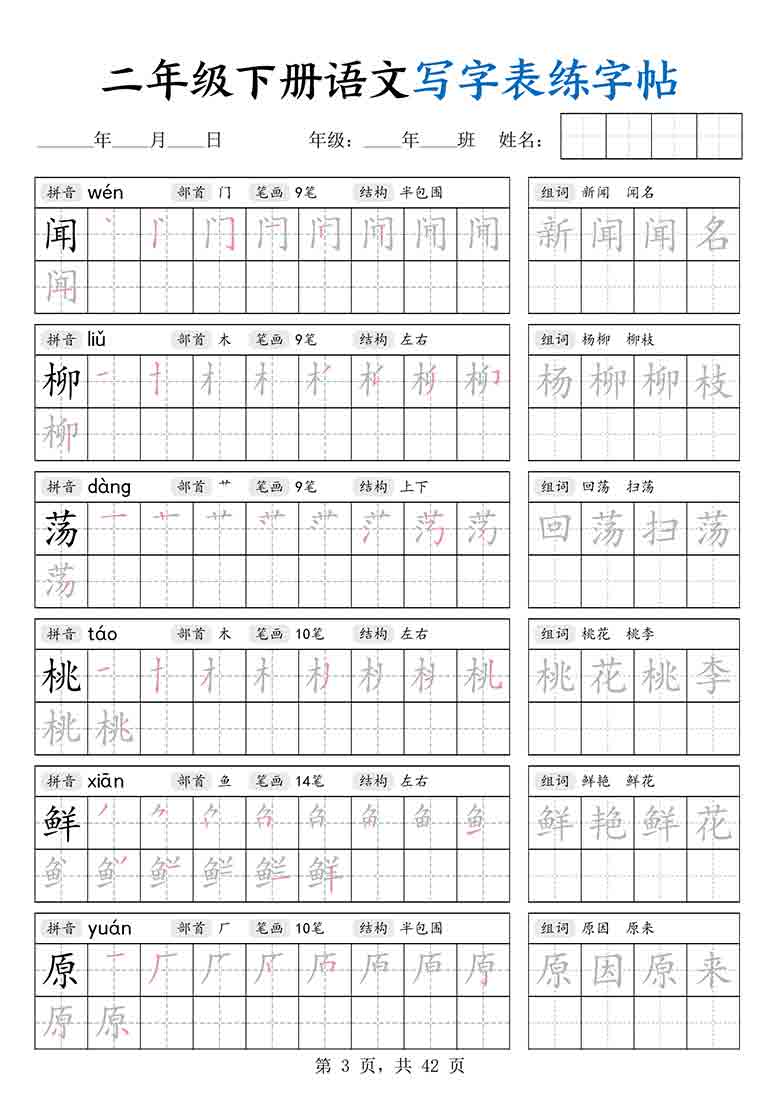 二年级下册语文写字表练字帖
______年____月____日 年级：____年____班 姓名：
拼音 wén 部首 门 笔画 9笔 结构 半包围 组词 新闻 闻名
闻 新闻闻名
拼音 liǔ 部首 木 笔画 9笔 结构 左右 组词 杨柳 柳枝
柳 杨柳柳枝
柳
拼音 dàng 部首 艹 笔画 9笔 结构 上下 组词 回荡 扫荡
荡 回荡扫荡
荡
拼音 táo 部首 木 笔画 10笔 结构 左右 组词 桃花 桃李
桃 桃花桃李
桃 桃
拼音 xiān 部首 鱼 笔画 14笔 结构 左右 组词 鲜艳 鲜花
鲜 鲜艳鲜花
鲜
拼音 yuán 部首 厂 笔画 10笔 结构 半包围 组词 原因 原来
原 原因原来
原 原
第 3 页，共 42 页